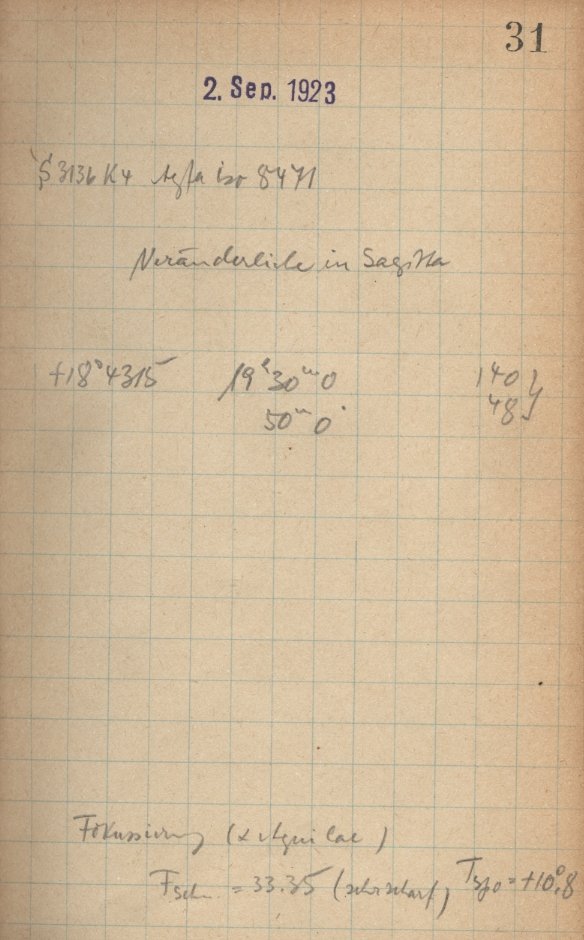 31
2. Sep. 1923
S 3136 K4 Agfa iso 8471
Veränderliche in Sagitta
+18° 4315 19h 30m 0 140 }
50m 0 48 }
Fokussierung (α Aquilae)
Fsch = 33.35 (sehr scharf) = +10°,8